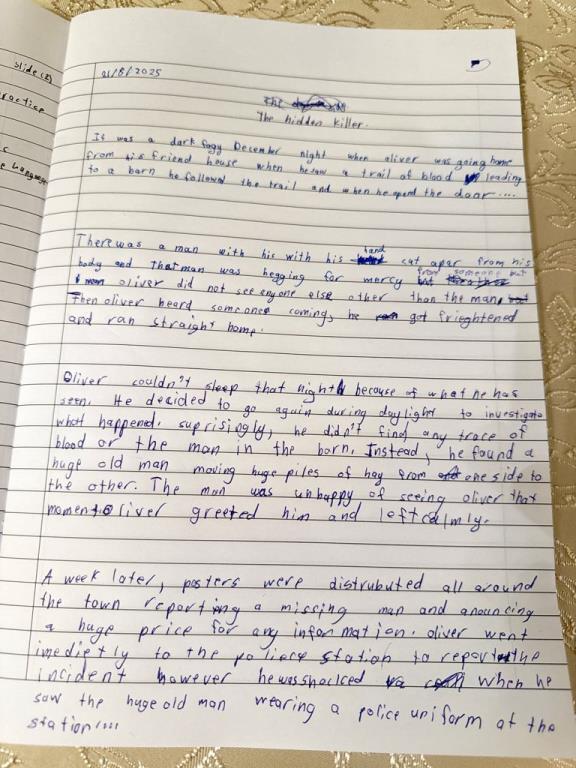 slide(2)
ractice
c
e language
21/8/2025
The
The hidden killer.
It was a dark fogy December night when oliver was going home
from his friend house when he saw a trail of blood leading
to a barn he followed the trail and when he opend the door....
There was a man with his with his hand cut apar from his
body and That man was begging for mercy from someone but
oliver did not see anyone else other than the man,
Then oliver heard someone coming, he got frieghtened
and ran straight home.
Oliver couldn't sleep that night because of what he has
seen. He decided to go again during day light to investigate
what happend. suprisingly, he didn't find any trace of
blood or the man in the barn. Instead, he found a
huge old man moving huge piles of hay from one side to
the other. The man was unhappy of seeing oliver that
moment oliver greeted him and left calmly.
A week later, posters were distrubuted all around
the town reporting a missing man and anouncing
a huge price for any information. oliver went
imedietly to the poliece station to report the
incident however he was shocked when he
saw the huge old man wearing a police uniform at the
station....